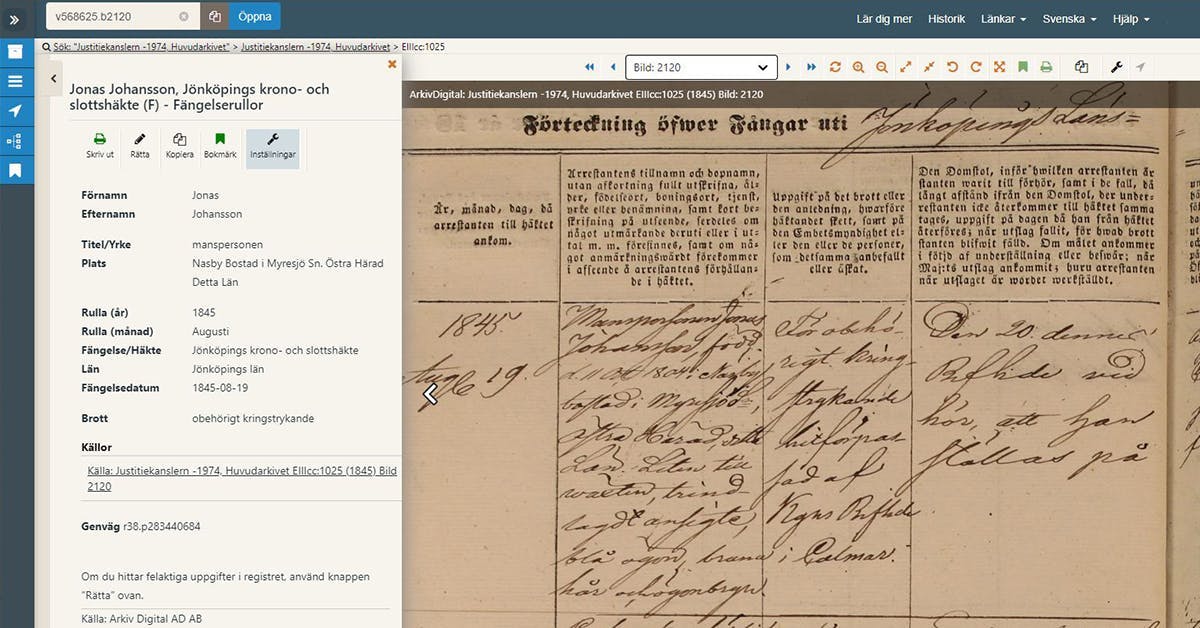 v568625.b2120
Öppna
Lär dig mer
Historik
Länkar
Svenska
Hjälp
Sök: "Justitiekanslern -1974, Huvudarkivet" > Justitiekanslern -1974, Huvudarkivet > EIIIcc:1025
Bild: 2120
Jonas Johansson, Jönköpings krono- och
slottshäkte (F) - Fängelserullor
Skriv ut
Rätta
Kopiera
Bokmärk
Inställningar
Förnamn Jonas
Efternamn Johansson
Titel/Yrke manspersonen
Plats Nasby Bostad i Myresjö Sn. Östra Härad
Detta Län
Rulla (år) 1845
Rulla (månad) Augusti
Fängelse/Häkte Jönköpings krono- och slottshäkte
Län Jönköpings län
Fängelsedatum 1845-08-19
Brott obehörigt kringstrykande
Källor
Källa: Justitiekanslern -1974, Huvudarkivet EIIIcc:1025 (1845) Bild
2120
Genväg r38.p283440684
Om du hittar felaktiga uppgifter i registret, använd knappen
"Rätta" ovan.
Källa: Arkiv Digital AD AB
ArkivDigital: Justitiekanslern -1974, Huvudarkivet EIIIcc:1025 (1845) Bild: 2120
Förteckning öfwer Fångar uti Jönköpings Läns-
År, månad, dag, då
arrestanten till häktet
ankom.
Arrestantens tillnamn och dopnamn,
utan afkortning fullt utskrifna, ål-
der, födelseort, boningsort, tjenst,
yrke eller benämning, samt kort be-
skrifning på utseende, serdeles om
något utmärkande deruti eller i ut-
tal m. m. förefinnes, samt om nå-
got anmärkningswärdt förekommer
i afseende å arrestantens förhållan-
de i häktet.
Uppgift på det brott eller
den anledning, hwarföre
häktandet skett, samt på
den Embetsmyndighet el-
ler den eller de personer,
som detsamma anbefallt
eller äskat.
Den Domstol, inför hwilken arrestanten är
stånden warit till förhör, samt i de fall, då
långt afstånd ifrån den Domstol, der under-
restanten icke återkommer till häktet samma
tages, uppgift på dagen då han från häktet
återföres; när utslag fallit, för hwad brott
stanten blifwit fälld. Om målet ankommer
i följd af underställning eller beswär; när
Maj:ts utslag ankommit; huru arrestanten
när utslaget är wordet werkstäldt.
1845.
Aug 19.
Manspersonen Jonas
Johansson, född
d. 11 Oct 1804 i Nasby
bostad i Myresjö Sn,
Östra Härad, detta
Län. Liten till
wäxten, trind-
lagdt ansigte,
blå ögon, bruna
hår och ögonbryn.
För obehö-
rigt kring-
strykande
hitförpas-
sad af
Kgns Bfhde
i Calmar.
Den 20. dennes
Bfhde
hör, att han
ställas på